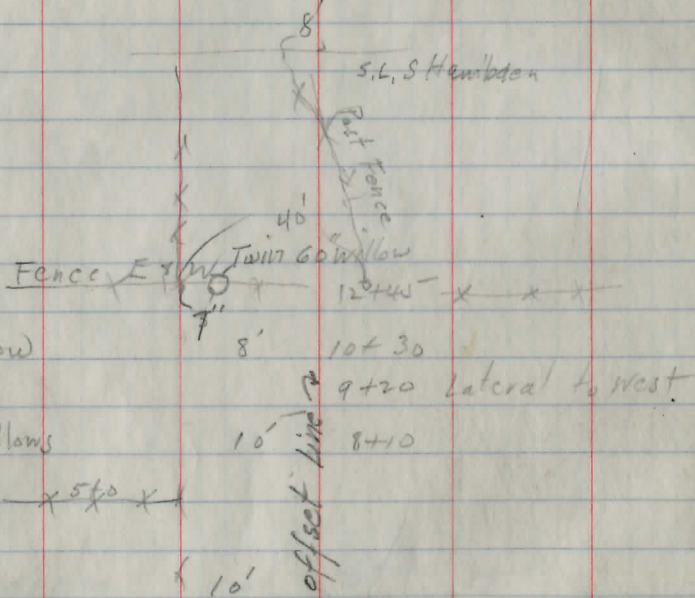 8
S.L. S Hambden
Post Fence
40'
Twin 60" Willow
Fence E & W
12+45
7"
8' 10+30
9+20 Lateral to West
10' 8+10
offset line
5+0
10'